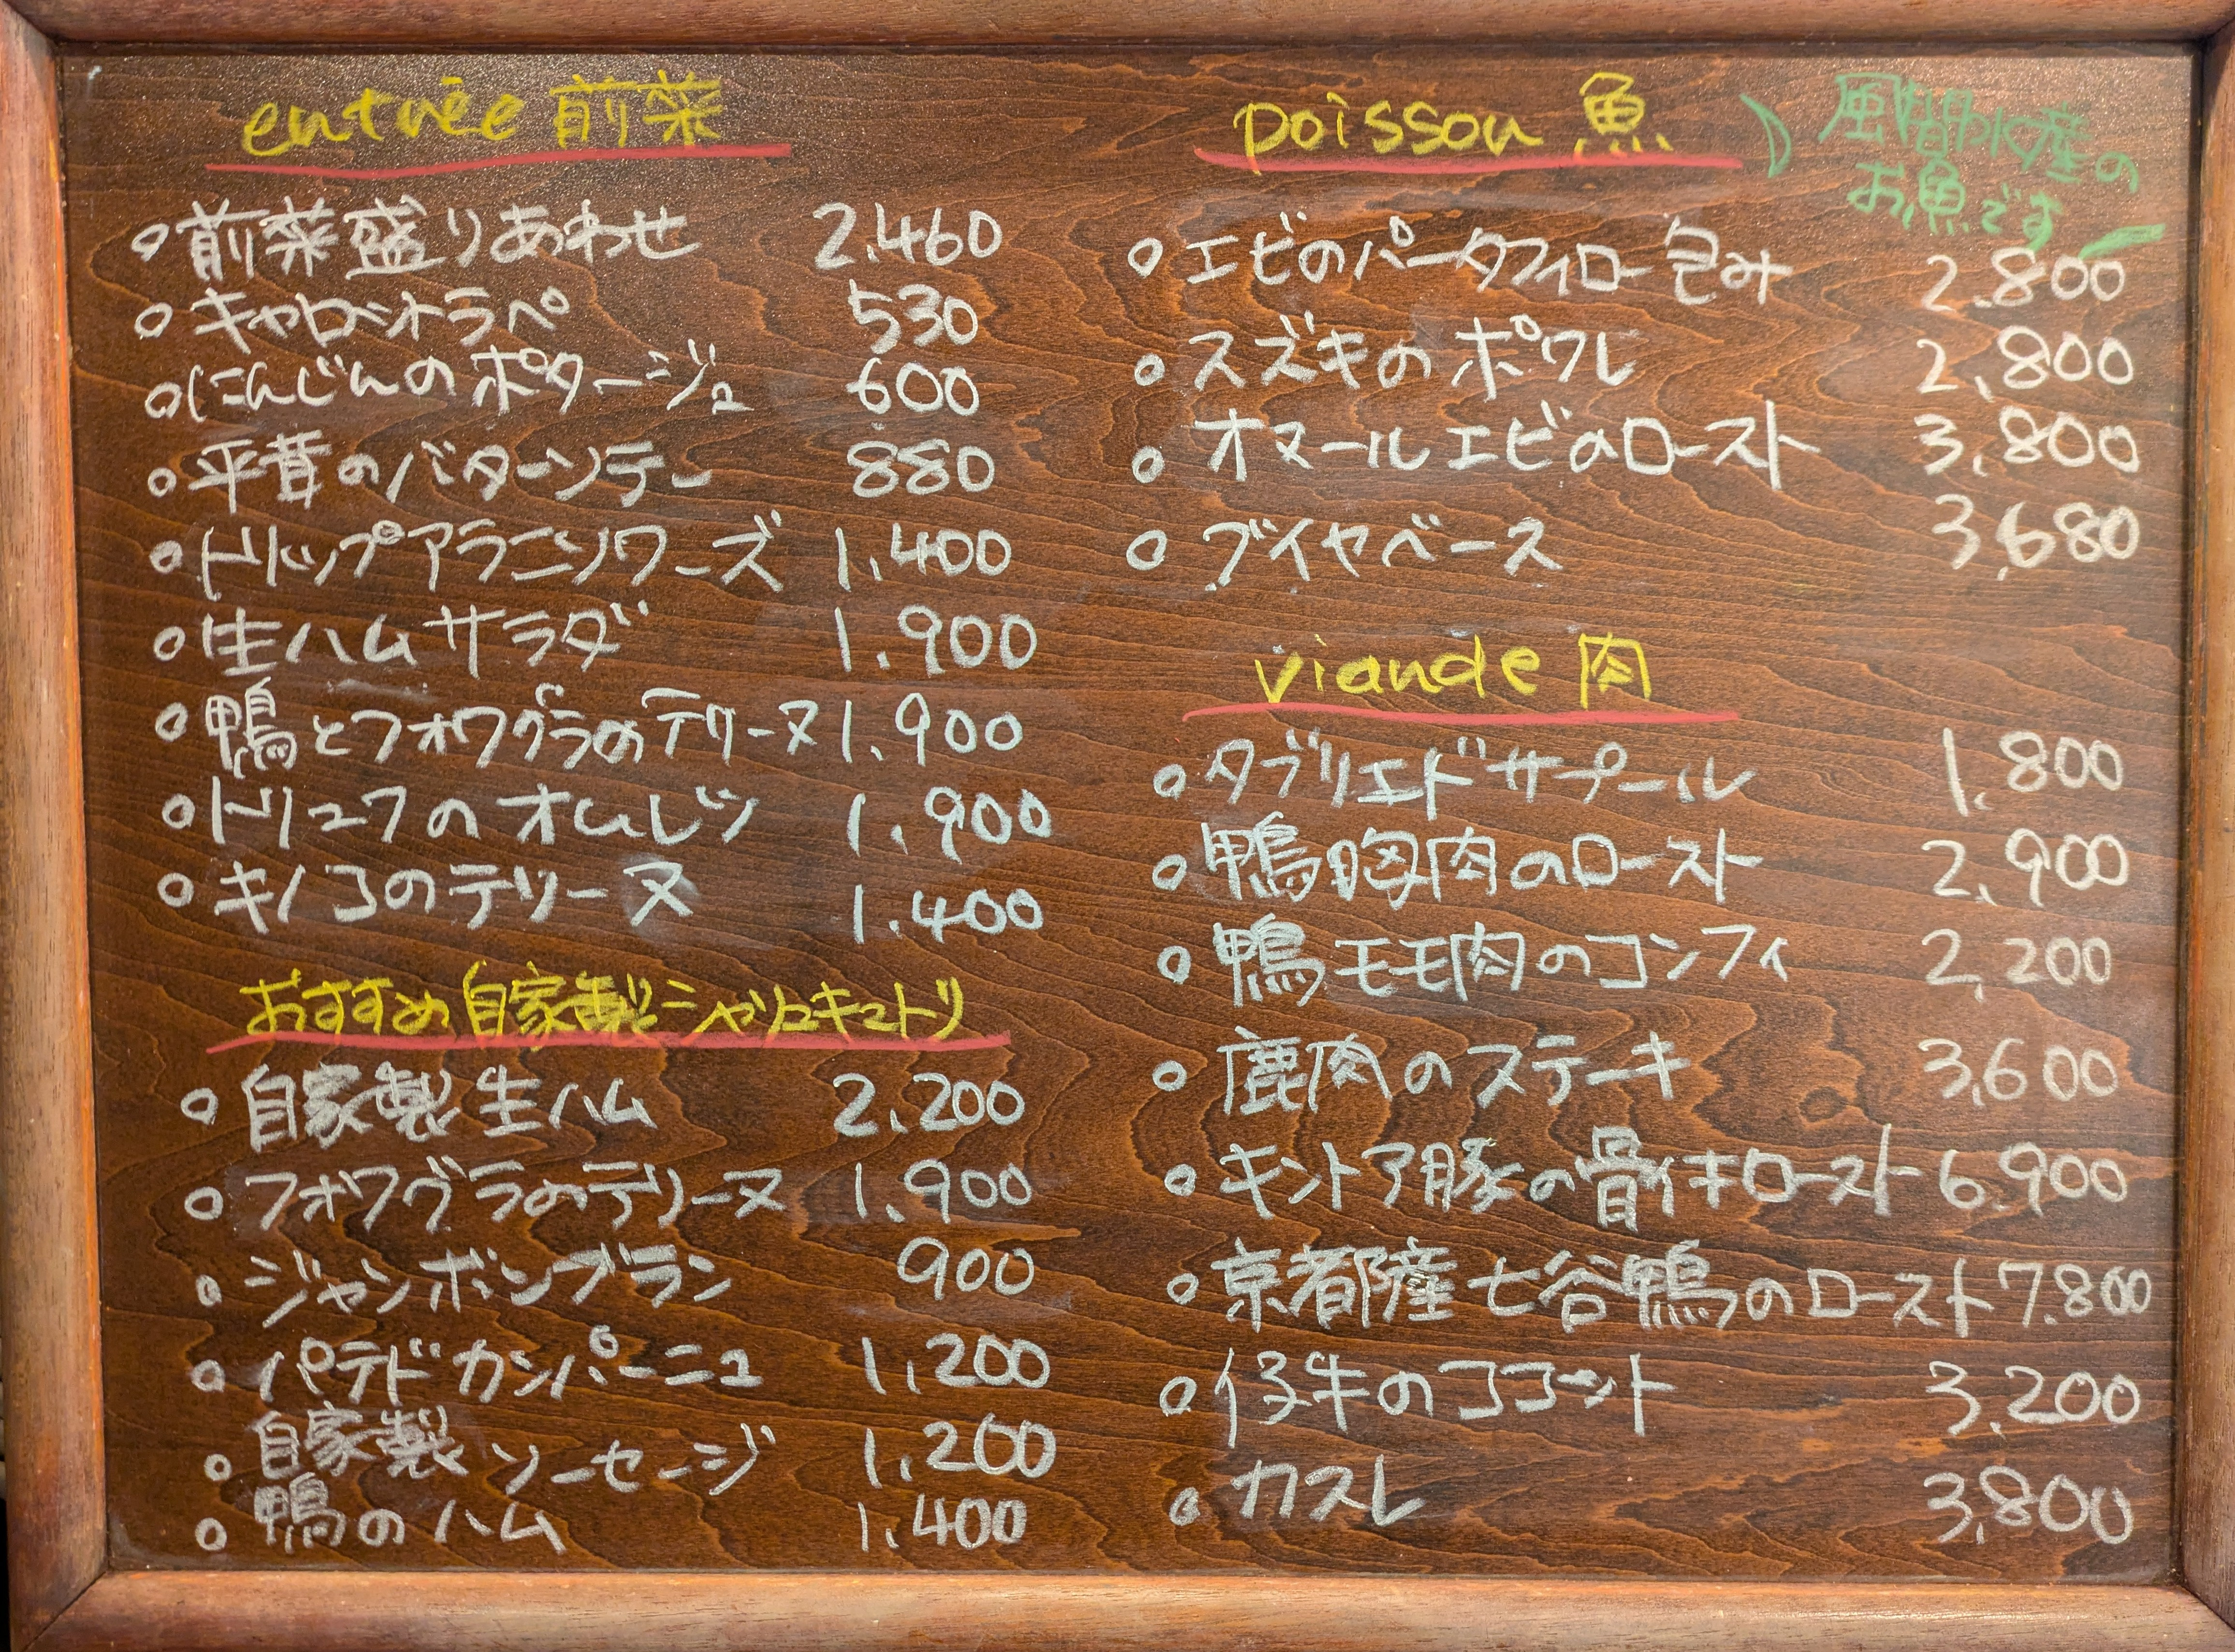 entrée 前菜
○前菜盛りあわせ 2.460
○キャロットラペ 530
○にんじんのポタージュ 600
○平茸のバターソテー 880
○トリップアラニソワーズ 1.400
○生ハムサラダ 1.900
○鴨とフォワグラのテリーヌ 1.900
○トリュフのオムレツ 1.900
○キノコのテリーヌ 1.400
おすすめ自家製シャリュキュトリ
○自家製生ハム 2.200
○フォワグラのテリーヌ 1.900
○ジャンボンブラン 900
○パテドカンパーニュ 1,200
○自家製ソーセージ 1.200
○鴨のハム 1.400
poisson 魚
風間水産の
お魚です
○エビのパータフィロー包み 2.800
○スズキのポワレ 2,800
○オマールエビのロースト 3,800
○ブイヤベース 3,680
viande 肉
○タブリエドサプール 1.800
○鴨胸肉のロースト 2.900
○鴨モモ肉のコンフィ 2,200
○鹿肉のステーキ 3,600
○キントア豚の骨付キロースト 6.900
○京都産七谷鴨のロースト 7.800
○仔牛のココット 3.200
○カスレ 3,800